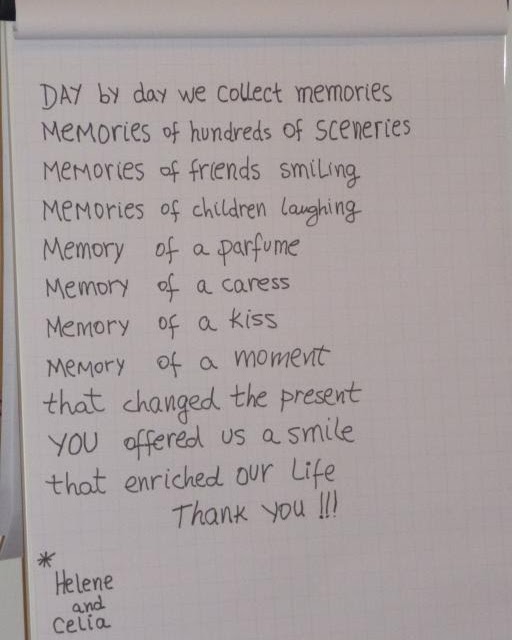 DAY by day we collect memories
Memories of hundreds of sceneries
Memories of friends smiling
Memories of children laughing
Memory of a parfume
Memory of a caress
Memory of a kiss
Memory of a moment
that changed the present
YOU offered us a smile
that enriched our Life
Thank you !!!
*
Helene
and
Celia